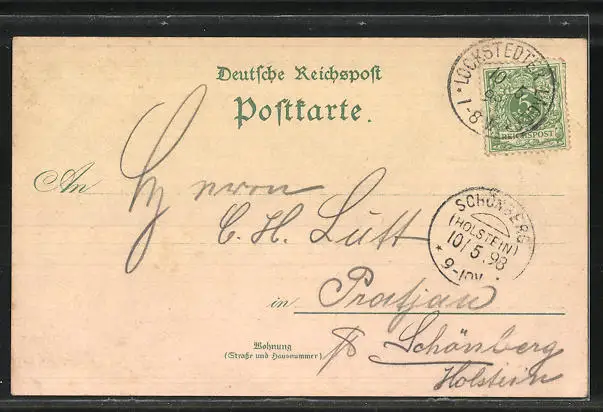 Deutsche Reichspost
Postkarte.
LOCKSTEDTER
10 5
REICHSPOST
An Herrn
C. H. Lütt
SCHÖNBERG
(HOLSTEIN)
10/5.98
9-10V.
in Pratjau
Wohnung
(Straße und Hausnummer)
Schönberg
Holstein